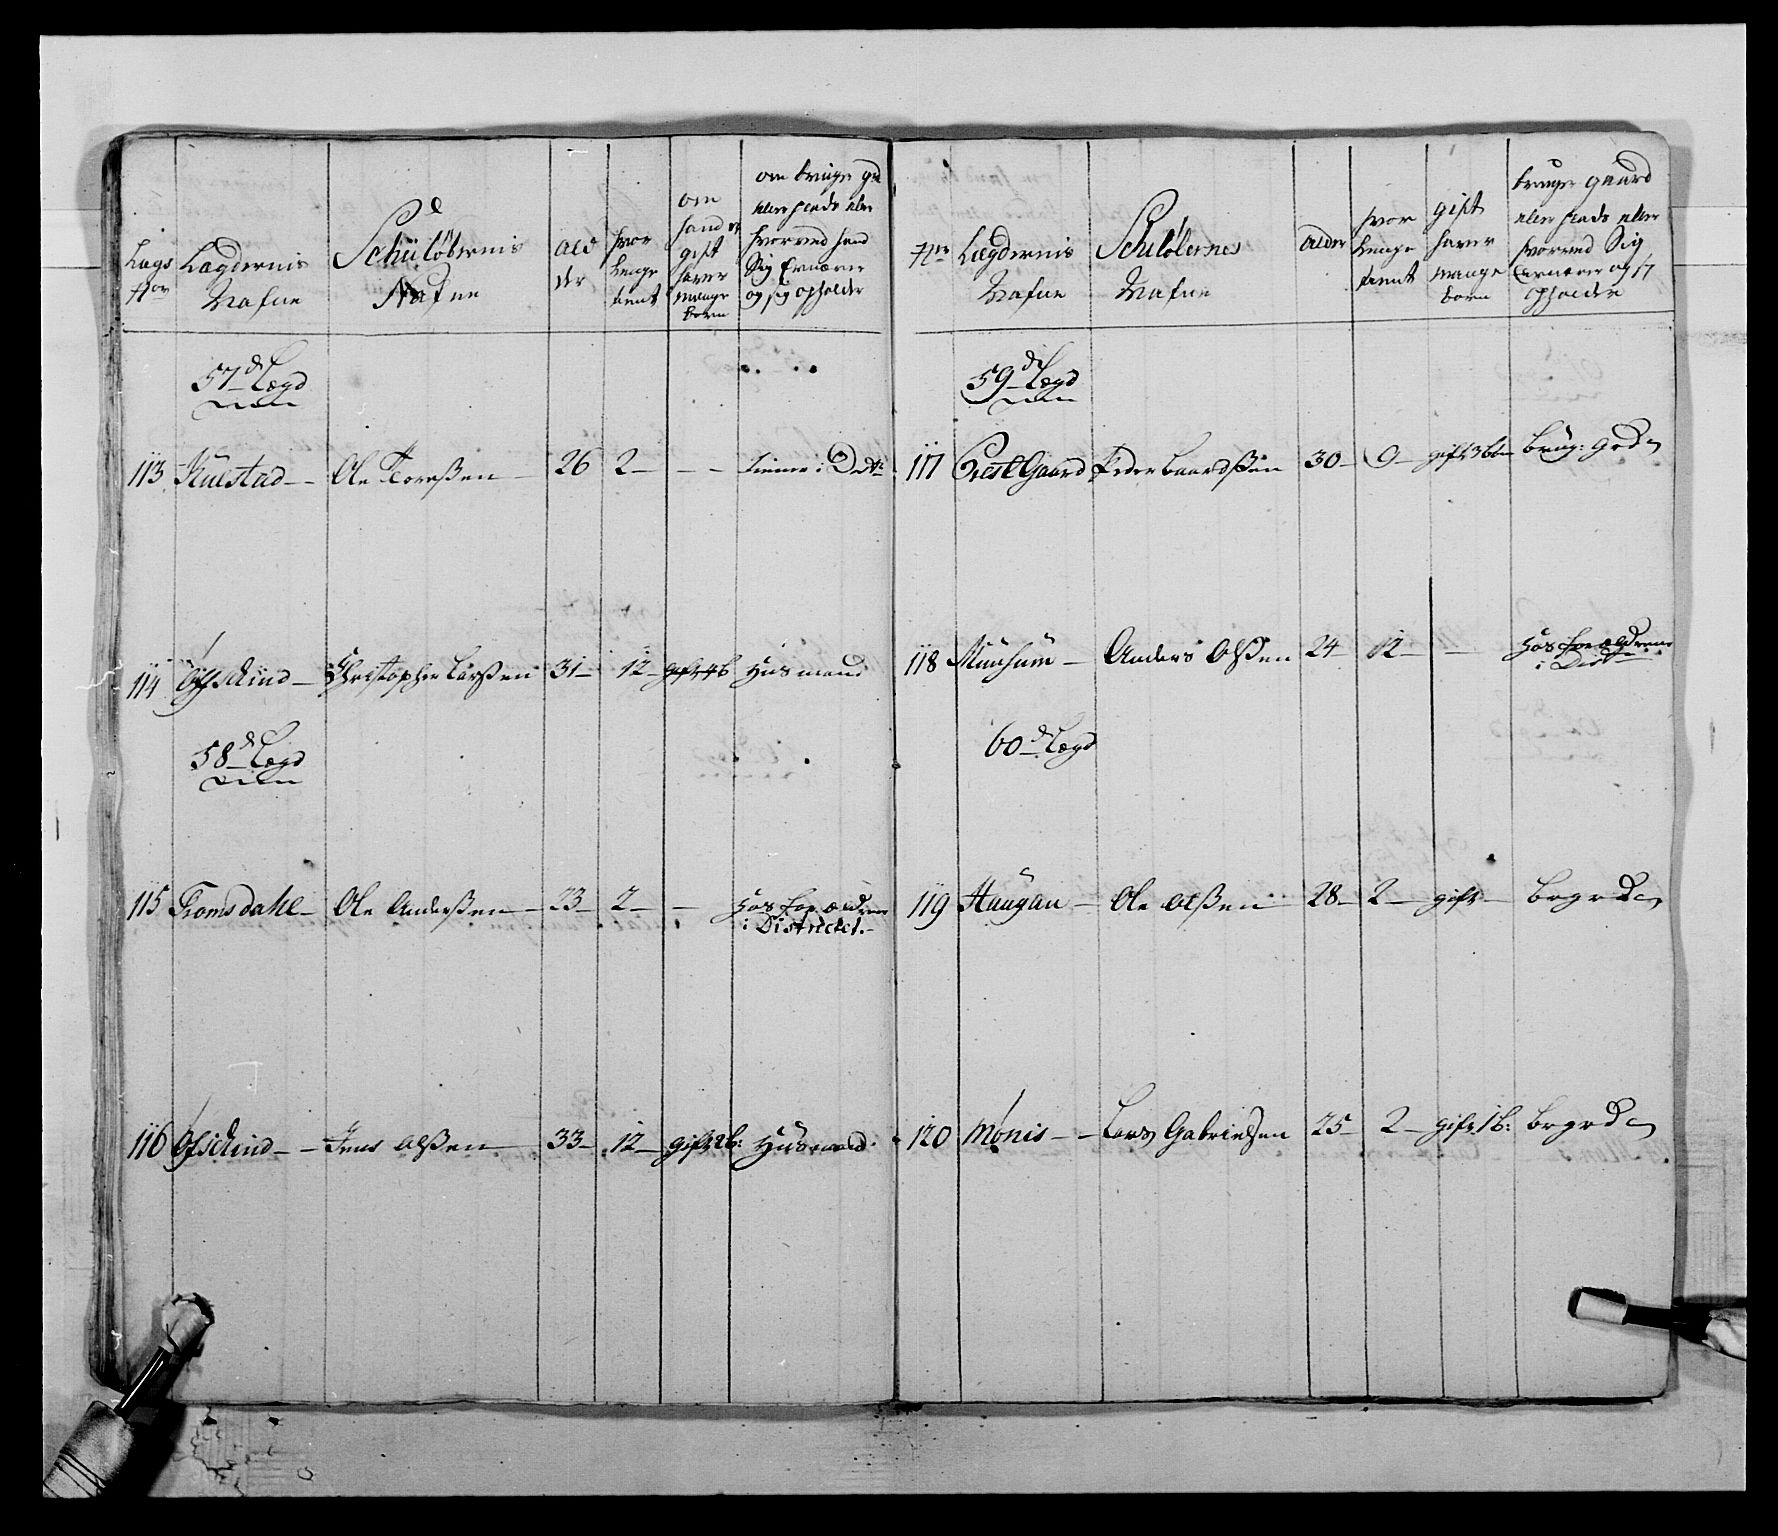 Lægdernis
Nafne
Schiiløbernis
Nafne
ald
der
hvor
lenge
tient
om
hand er
gift
haver
mange
børn
om bruger grd
eller pladz eller
hvorved hand
Sig Ernærer
og sig opholder
57de Lægd
113 Kulstad Ole Toreßen 26 2 – – tiener i Dist:
114 Christopher Larßen 31 12 gift 4 b Huusmand
58de Lægd
115 Tromsdahl Ole Anderßen 23 2 – Hos Forældrene
i Districtet.
116 Jens Olßen 33 12 gift 2 b: Huusmand
Lægdernis
Nafne
Schiløbernes
Nafne
alder
hvor
lenge
tient
gift
haver
mange
børn
bruger gaard
eller pladz eller
hvorved Sig
Ernærer og
opholder
59de Lægd
117 PrestGaard Peder Baardßen 30 9 gift 3 b brug: grd
118 Anders Olßen 24 12 – Hos Forældrene
i Dist
60de Lægd
119 Haugan Ole Olßen 28 2 gift
120 Mønis Lars Gabrielsen 25 2 gift 1 b: